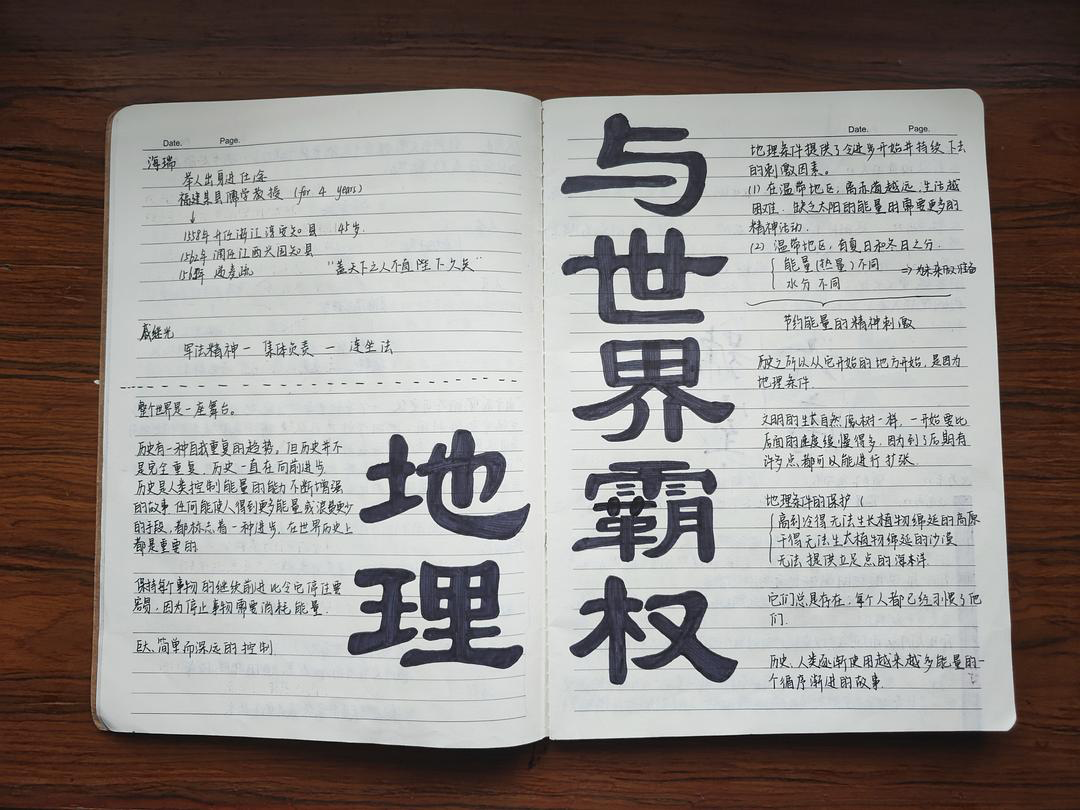 Date. Page.
海瑞
举人出身进仕途
福建某县儒学教授 (for 4 years)
↓
1558年 升任浙江淳安知县 45岁.
1562年 调任江西兴国知县
"盖天下之人不直陛下久矣"
戚继光
军法精神 — 集体负责 — 连坐法
整个世界是一座舞台。
历史有一种自我重复的趋势, 但历史并不
是完全重复. 历史一直在向前进步
历史是人类控制能量的能力不断增强
的故事 任何能使人得到更多能量或浪费更少
的手段, 都标志着一种进步, 在世界历史上
都是重要的
保持每个事物的继续前进比令它停住要
容易, 因为停止事物需要消耗能量.
巨大、简单而深远的控制
地理
与世界霸权
Date. Page.
地理条件提供了令进步开始并持续下去
的刺激因素。
(1) 在温带地区, 离赤道越远, 生活越
困难. 缺乏太阳的能量的需要更多的
精神活动.
(2) 温带地区, 有夏日和冬日之分.
能量(热量)不同
水分 不同
⇒ 为未来做准备
节约能量的精神刺激
历史之所以从它开始的地方开始, 是因为
地理条件.
文明的生长自然像树一样, 一开始要比
后面的速度缓慢得多. 因为到了后期有
许多点都可以能进行扩张.
地理条件的保护 (
高到冷得无法生长植物绵延的高原
干得无法生长植物绵延的沙漠
无法提供立足点的海洋
它们总是存在, 每个人都已经习惯了他
们.
历史、人类逐渐使用越来越多能量的一
个循序渐进的故事.